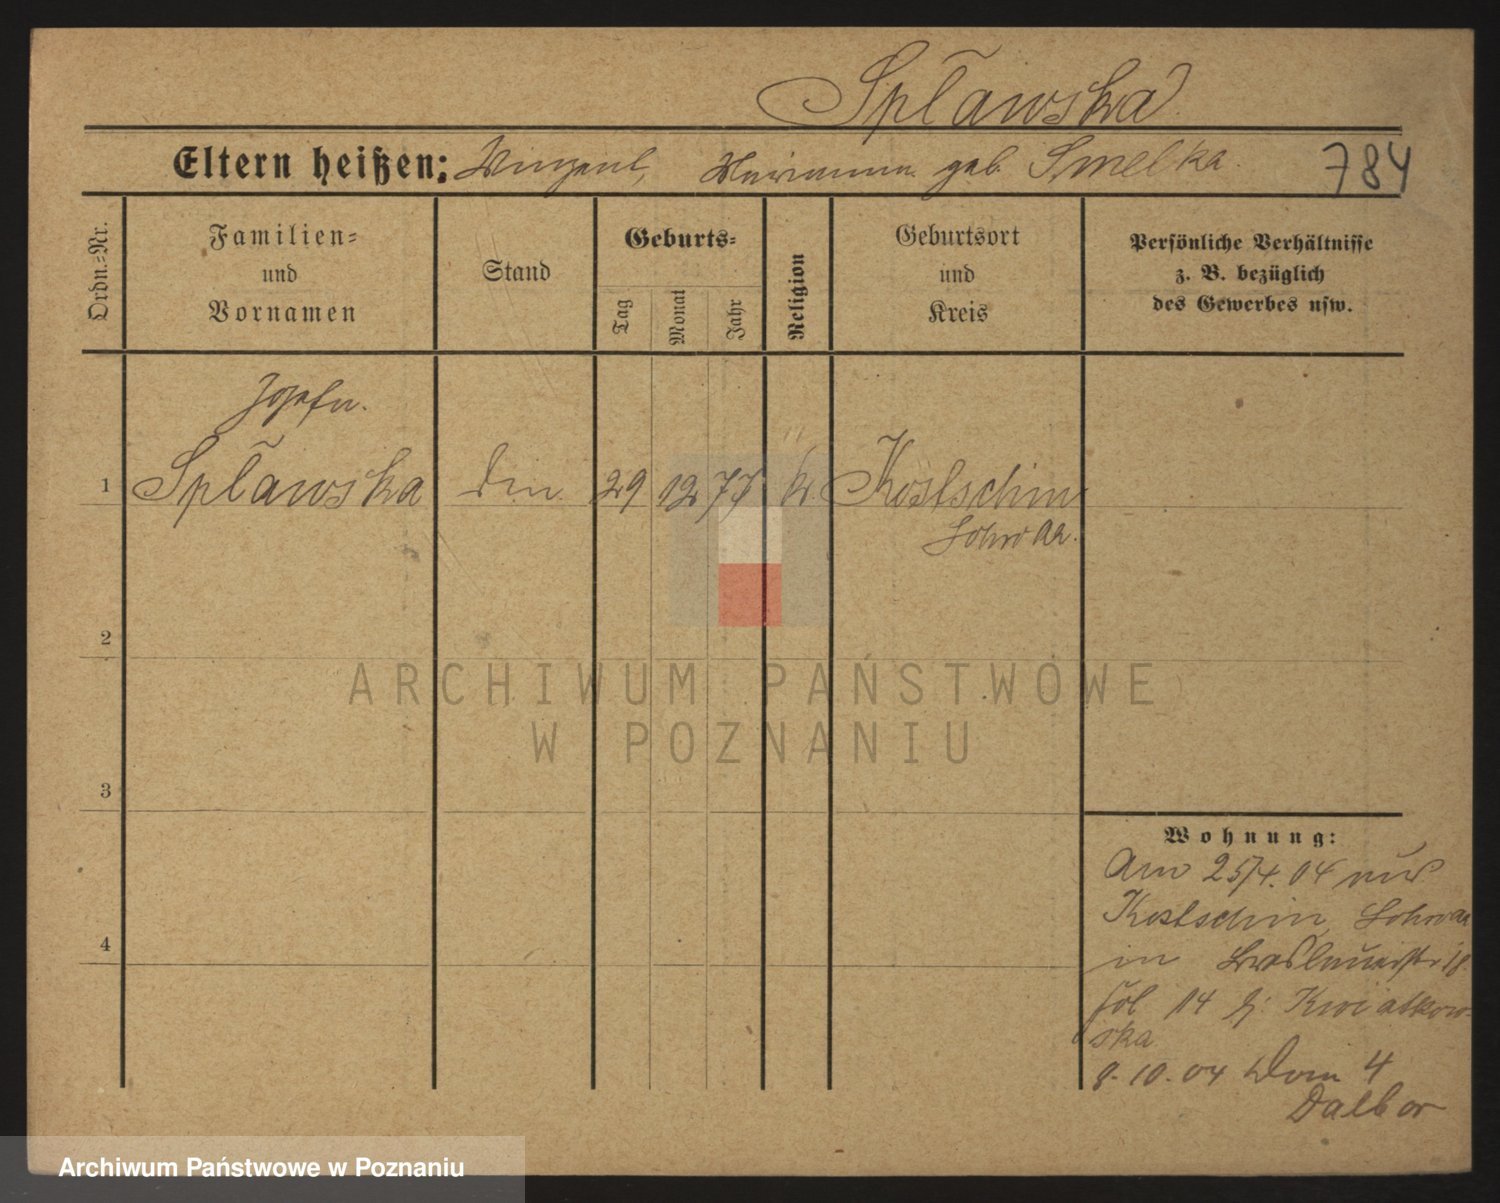 Spławska
Eltern heißen: Vinzent, Marianna geb. Smelka.
784
Ordn.=Nr.
Familien=
und
Vornamen
Stand
Geburts=
Tag
Monat
Jahr
Religion
Geburtsort
und
Kreis
Persönliche Verhältnisse
z. B. bezüglich
des Gewerbes usw.
Jozefa.
1 Spławska 29 12 77 k. Kostschin
2
3
4
Wohnung:
Am 25/4. 04 aus
Kostschin
in 18
14 b: Kwiatkow-
ska
8.10.04 Dom 4
Dalbor
ARCHIWUM PAŃSTWOWE
W POZNANIU
Archiwum Państwowe w Poznaniu